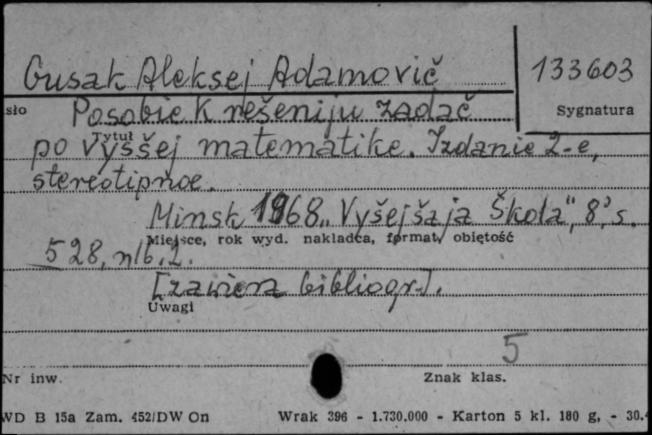 Gusak Aleksej Adamovič
133603
sło
Posobie k rešeniju zadač
Sygnatura
Tytuł
po vyššej matematike. Izdanie 2-e,
stereotipnoe.
Minsk 1968 „Vyšejšaja Škola", 8°, s.
Miejsce, rok wyd. nakładca, format, objętość
528, nlb. 2.
[zawiera bibliogr.].
Uwagi
5
Nr inw.
Znak klas.
WD B 15a Zam. 452/DW On Wrak 396 - 1.730.000 - Karton 5 kl. 180 g, - 30.4